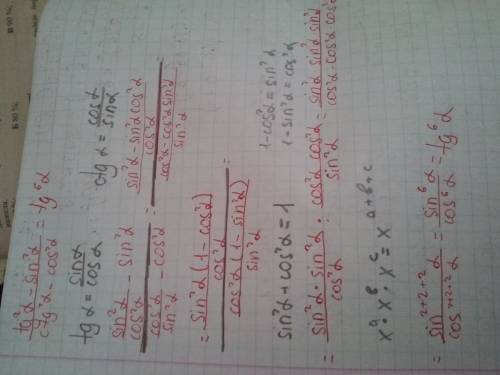 tg²α - sin²α / ctg²α - cos²α = tg⁶α
tgα = sinα / cosα    ctgα = cosα / sinα
(sin²α / cos²α - sin²α) / (cos²α / sin²α - cos²α) = ((sin²α - sin²α cos²α) / cos²α) / ((cos²α - cos²α sin²α) / sin²α) =
= (sin²α (1 - cos²α) / cos²α) / (cos²α (1 - sin²α) / sin²α) =
sin²α + cos²α = 1    1 - cos²α = sin²α
1 - sin²α = cos²α
= (sin²α · sin²α / cos²α) : (cos²α cos²α / sin²α) = sin²α sin²α sin²α / cos²α · cos²α cos²α
xᵃ · xᵇ · xᶜ = xᵃ⁺ᵇ⁺ᶜ
= sin²⁺²⁺²α / cos²⁺²⁺²α = sin⁶α / cos⁶α = tg⁶α